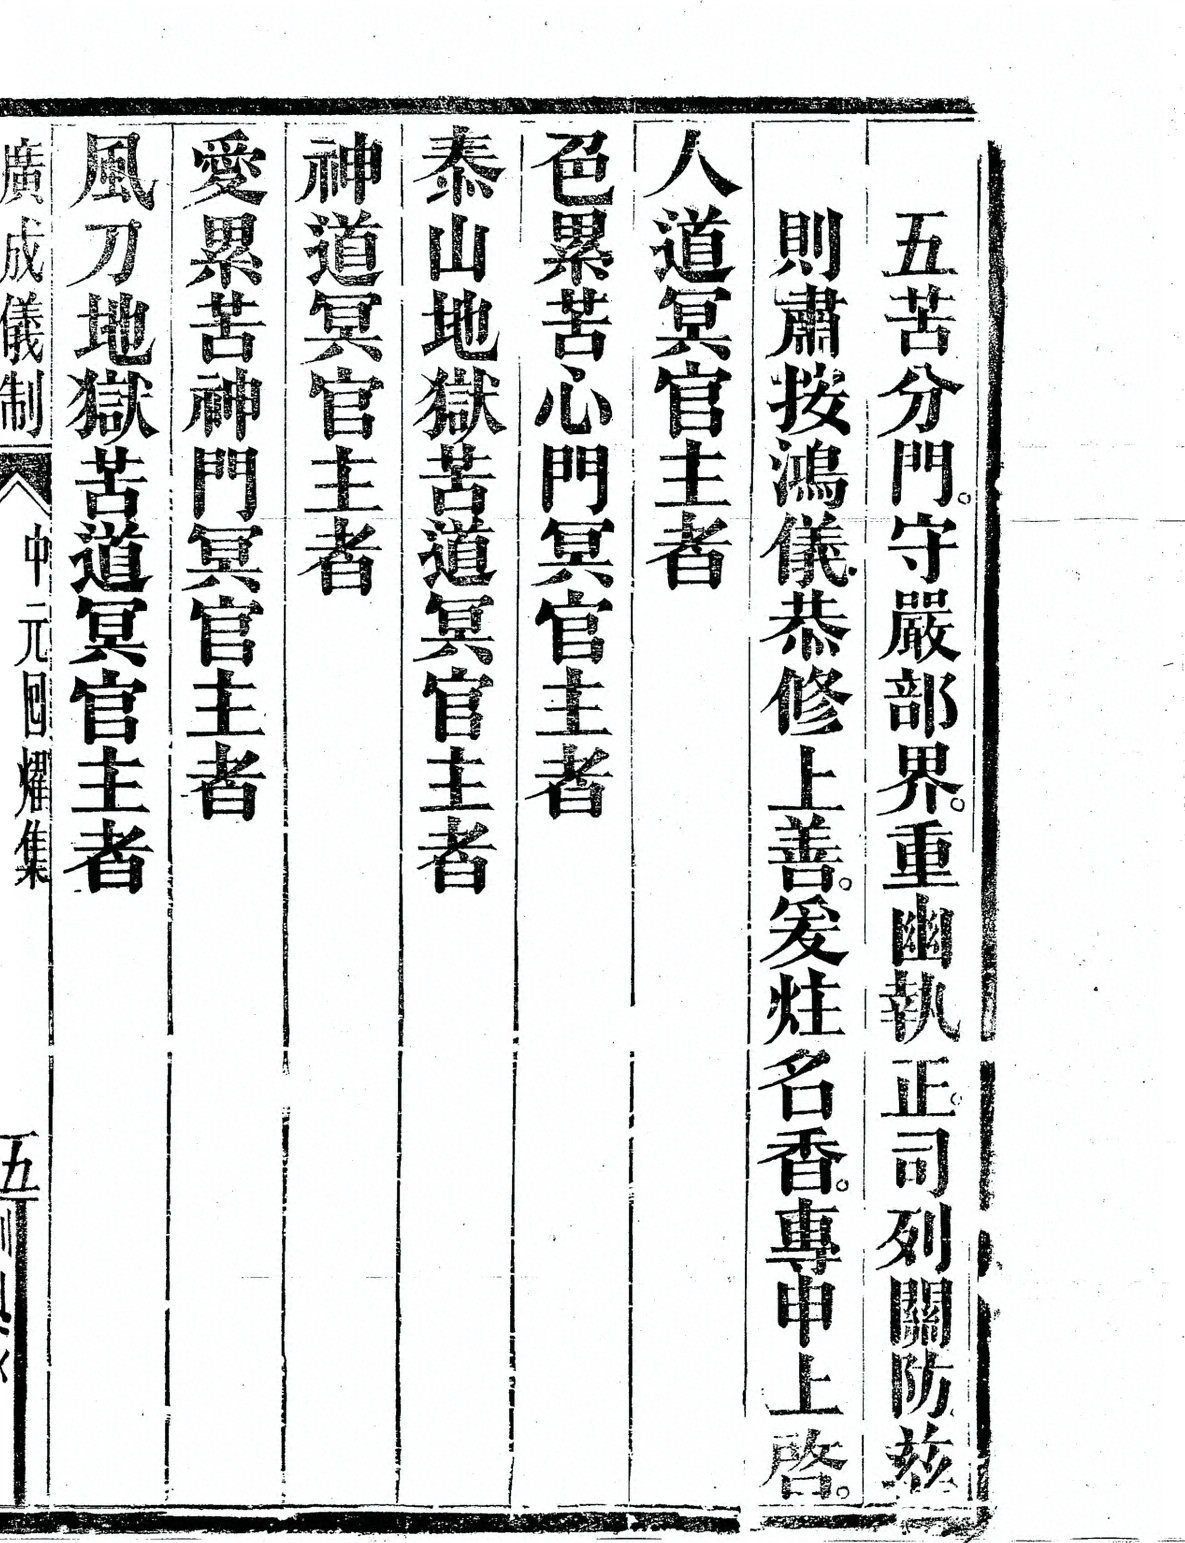 五苦分門。守嚴部界。重幽執正。司列關防茲
則肅按鴻儀恭修上善。爰炷名香。專申上啓。
人道冥官主者
色累苦心門冥官主者
泰山地獄苦道冥官主者
神道冥官主者
愛累苦神門冥官主者
風刀地獄苦道冥官主者
廣成儀制 中元回耀集 五